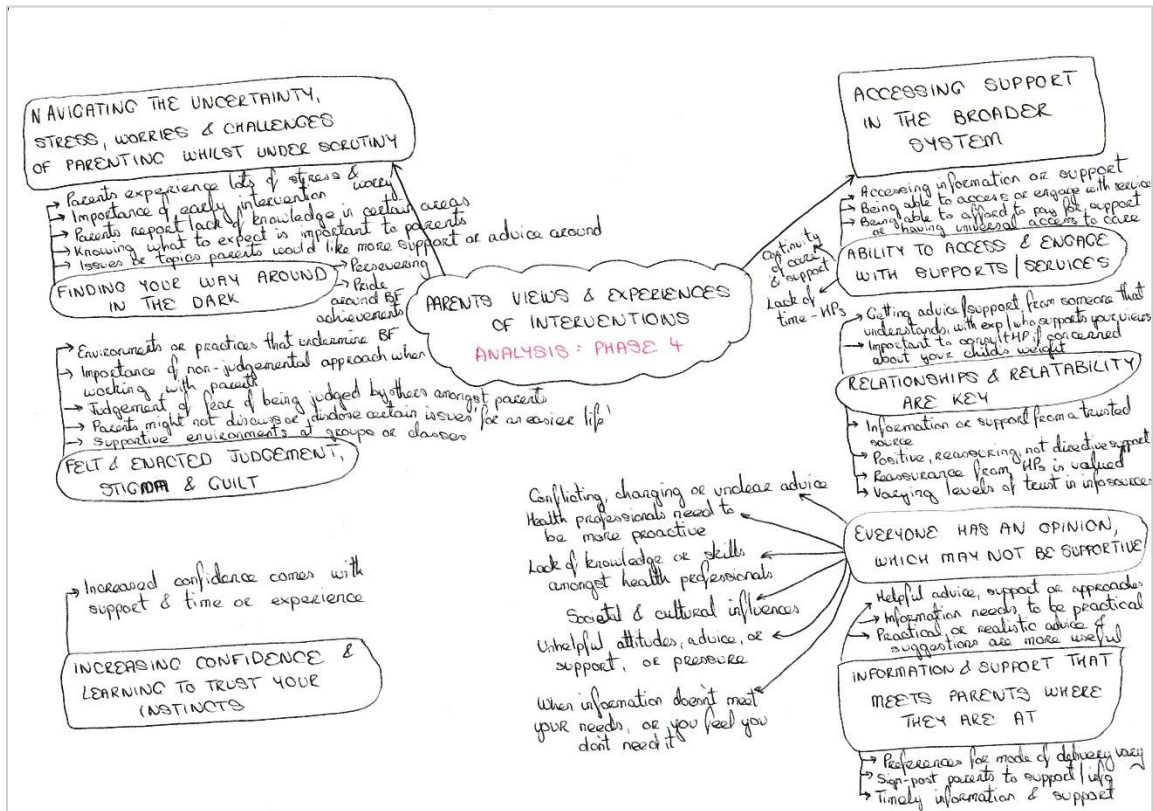 NAVIGATING THE UNCERTAINTY,
STRESS, WORRIES & CHALLENGES
OF PARENTING WHILST UNDER SCRUTINY
Parents experience lots of stress &
worry
Importance of early intervention
Parents report lack of knowledge in certain areas
Knowing what to expect is important to parents
Issues or topics parents would like more support or advice around
FINDING YOUR WAY AROUND
IN THE DARK
Persevering
Pride
around BF
achievements
Environments or practices that undermine BF
Importance of non-judgemental approach when
working with parents
Judgement of fear of being judged by others amongst parents
Parents might not discuss or disclose certain issues 'for an easier life'
Supportive environments at groups or classes
FELT & ENACTED JUDGEMENT,
STIGMA & GUILT
Increased confidence comes with
support & time or experience
INCREASING CONFIDENCE &
LEARNING TO TRUST YOUR
INSTINCTS
PARENTS VIEWS & EXPERIENCES
OF INTERVENTIONS
ANALYSIS: PHASE 4
ACCESSING SUPPORT
IN THE BROADER
SYSTEM
Accessing information or support
Being able to access or engage with service
Being able to afford to pay for support
or having universal access to care
Continuity
of care
& support
Lack of
time - HPs
ABILITY TO ACCESS & ENGAGE
WITH SUPPORTS/SERVICES
Getting advice/support from someone that
understands, with exp/who supports your views
Important to consult HP if concerned
about your child's weight
RELATIONSHIPS & RELATABILITY
ARE KEY
Information or support from a trusted
source
Positive, reassuring, not directive support
Reassurance from HPs is valued
Varying levels of trust in info sources
EVERYONE HAS AN OPINION,
WHICH MAY NOT BE SUPPORTIVE
Conflicting, changing or unclear advice
Health professionals need to
be more proactive
Lack of knowledge or skills
amongst health professionals
Societal & cultural influences
Unhelpful attitudes, advice, or
support, or pressure
When information doesn't meet
your needs, or you feel you
don't need it
Helpful advice, support or approaches
Information needs to be practical
Practical or realistic advice &
suggestions are more useful
INFORMATION & SUPPORT THAT
MEETS PARENTS WHERE
THEY ARE AT
Preferences for mode of delivery vary
Sign-post parents to support/info
Timely information & support